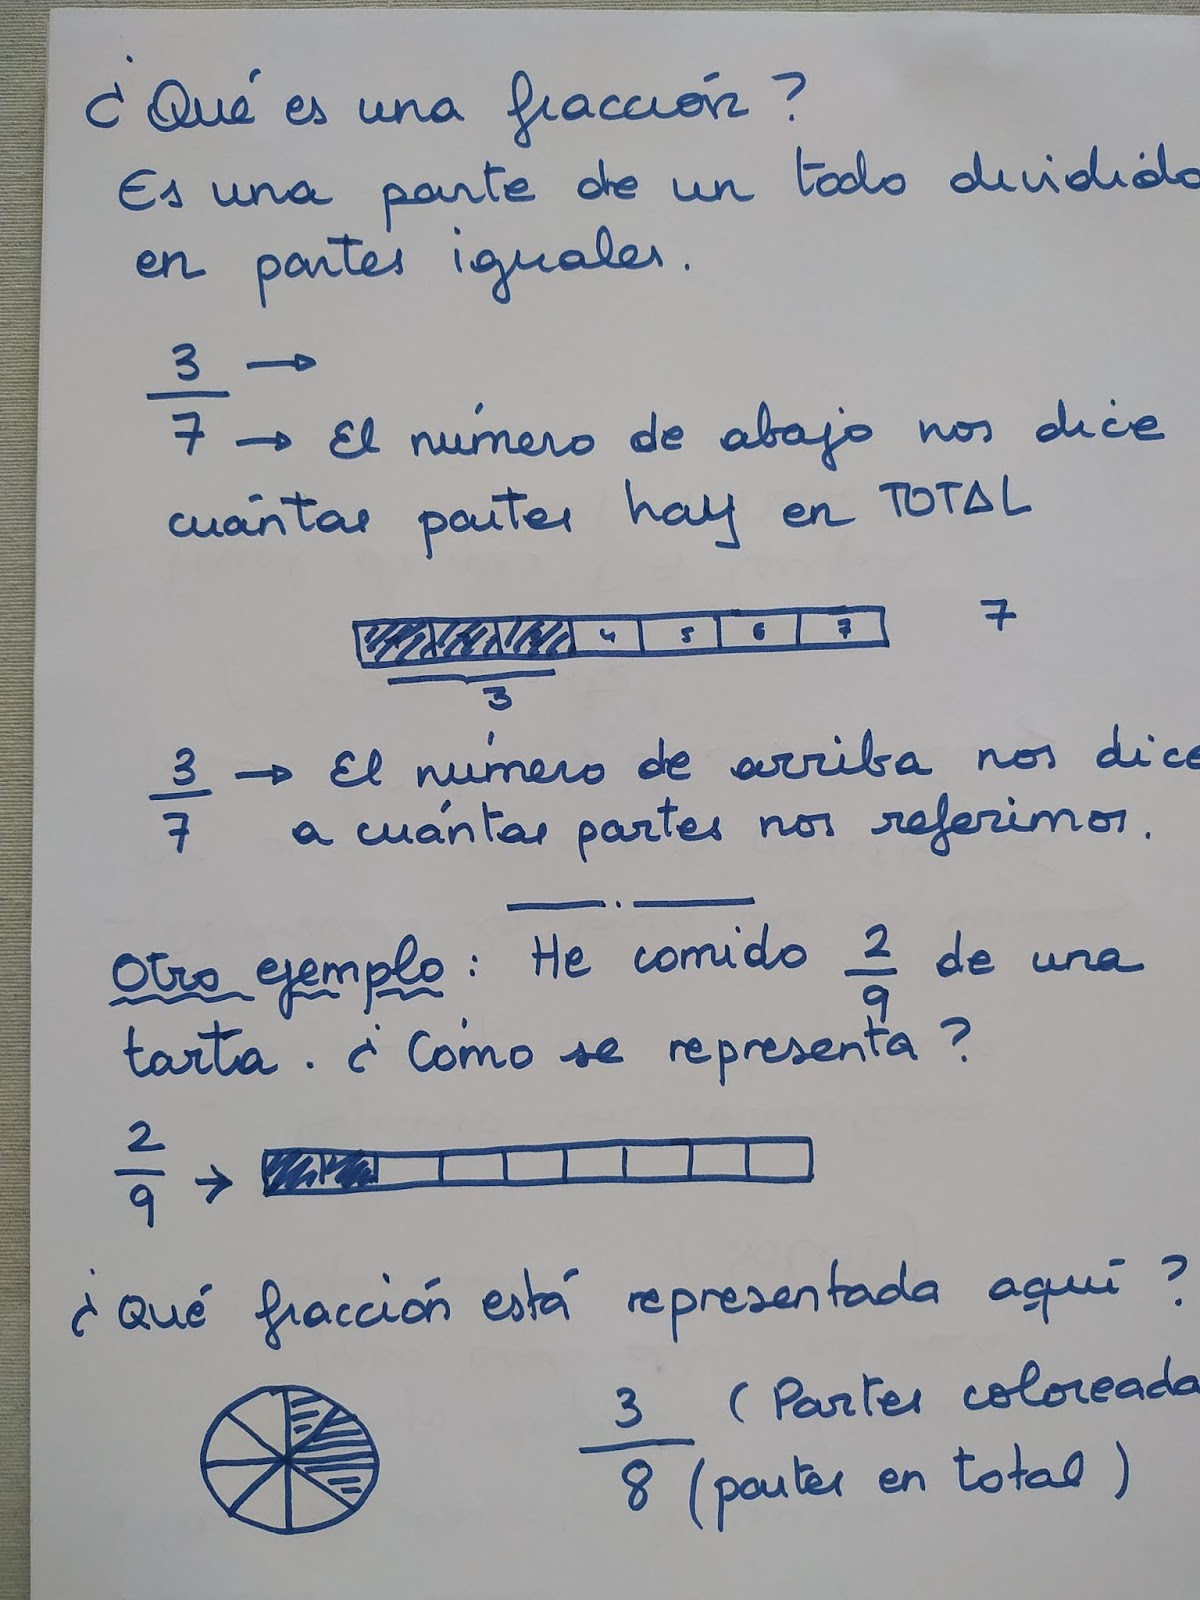 ¿Qué es una fracción?
Es una parte de un todo dividido
en partes iguales.
3/7 →
→ El número de abajo nos dice
cuántas partes hay en TOTAL
4 5 6 7 7
3
3/7 → El número de arriba nos dice
a cuántas partes nos referimos.
Otro ejemplo: He comido 2/9 de una
tarta. ¿Cómo se representa?
2/9 →
¿Qué fracción está representada aquí?
3 (Partes coloreada
8 (partes en total)